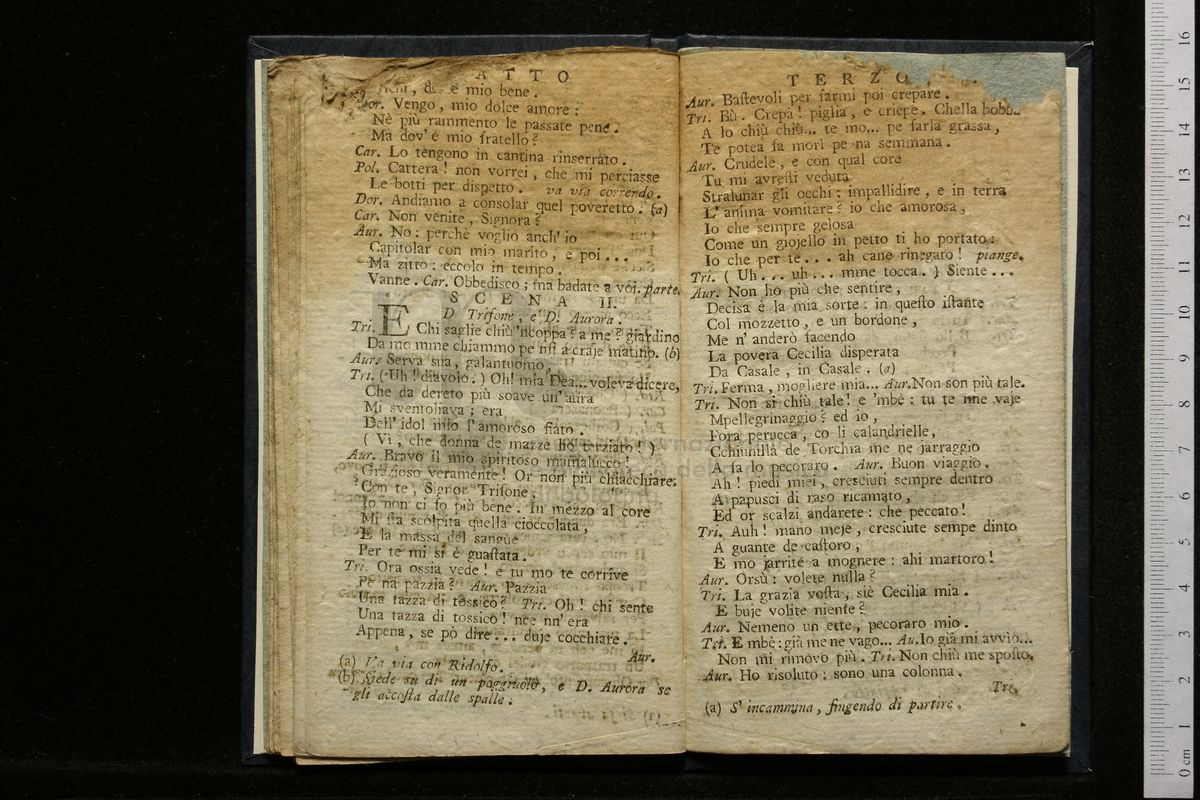 ATTO
mio bene.
Dor. Vengo, mio dolce amore:
Nè più rammento le passate pene.
Ma dov' è mio fratello?
Car. Lo tengono in cantina rinserrato.
Pol. Cattera! non vorrei, che mi perciasse
Le botti per dispetto. va via correndo.
Dor. Andiamo a consolar quel poveretto. (a)
Car. Non venite, Signora?
Aur. No: perchè voglio anch' io
Capitolar con mio marito, e poi...
Ma zitto: eccolo in tempo.
Vanne. Car. Obbedisco; ma badate a voi. parte.
SCENA II.
D Trifone, e D. Aurora.
Tri. E Chi saglie chiù 'ncoppa? a me? giardino
Da mo mme chiammo pe nsi a craje matino. (b)
Aur. Serva sua, galantuomo.
Tri. (Uh! diavolo.) Oh! mia Dea... voleva dicere,
Che da dereto più soave un' aura
Mi sventoliava; era
Dell' idol mio l' amoroso fiato.
(Vi, che donna de mazze ho terziato!)
Aur. Bravo il mio spiritoso mamalucco!
Grazioso veramente! Or non più chiacchiare:
Con te, Signor Trifone
Io non ci fo più bene. In mezzo al core
Mi sta scolpita quella cioccolata,
E la massa del sangue
Per te mi si è guastata.
Tri. Ora ossia vede! e tu mo te corrive
Pe na pazzia? Aur. Pazzia
Una tazza di tossico? Tri. Oh! chi sente
Una tazza di tossico! nce nn' era
Appena, se pò dire... duje cocchiare.
Aur.
(a) Va via con Ridolfo.
(b) Siede su di un poggiuolo, e D. Aurora se
gli accosta dalle spalle.
TERZO.
Aur. Bastevoli per farmi poi crepare.
Tri. Bù. Crepà! piglia, e criepe. Chella
A lo chiù chiù... te mo... pe farla grassa,
Te potea fa morì pe na semmana.
Aur. Crudele, e con qual core
Tu mi avresti veduta
Stralunar gli occhi: impallidire, e in terra
L' anima vomitare? io che amorosa,
Io che sempre gelosa
Come un giojello in petto ti ho portato:
Io che per te... ah cane rinegato! piange.
Tri. (Uh... uh... mme tocca.) Siente...
Aur. Non ho più che sentire,
Decisa è la mia sorte: in questo istante
Col mozzetto, e un bordone,
Me n' anderò facendo
La povera Cecilia disperata
Da Casale, in Casale, (a)
Tri. Ferma, mogliere mia... Aur. Non son più tale.
Tri. Non si chiù tale! e 'mbè: tu te nne vaje
Mpellegrinaggio? ed io,
Fora perucca, co li calandrielle,
Cchiunnila de Torchia me ne jarraggio
A fa lo pecoraro. Aur. Buon viaggio.
Ah! piedi miei, cresciuti sempre dentro
A papusci di raso ricamato,
Ed or scalzi andarete: che peccato!
Tri. Auh! mano meje, cresciute sempe dinto
A guante de castoro,
E mo jarrite a mognere: ahi martoro!
Aur. Orsù: volete nulla?
Tri. La grazia vosta, siè Cecilia mia.
E buje volite niente?
Aur. Nemeno un ette, pecoraro mio.
Tri. E mbè: già me ne vago... Au. Io già mi avvio...
Non mi rimovo più. Tri. Non chiù me sposto.
Aur. Ho risoluto: sono una colonna.
Tri.
(a) S' incammina, fingendo di partire.
16
15
14
13
12
11
10
9
8
7
6
5
4
3
2
1
0 cm